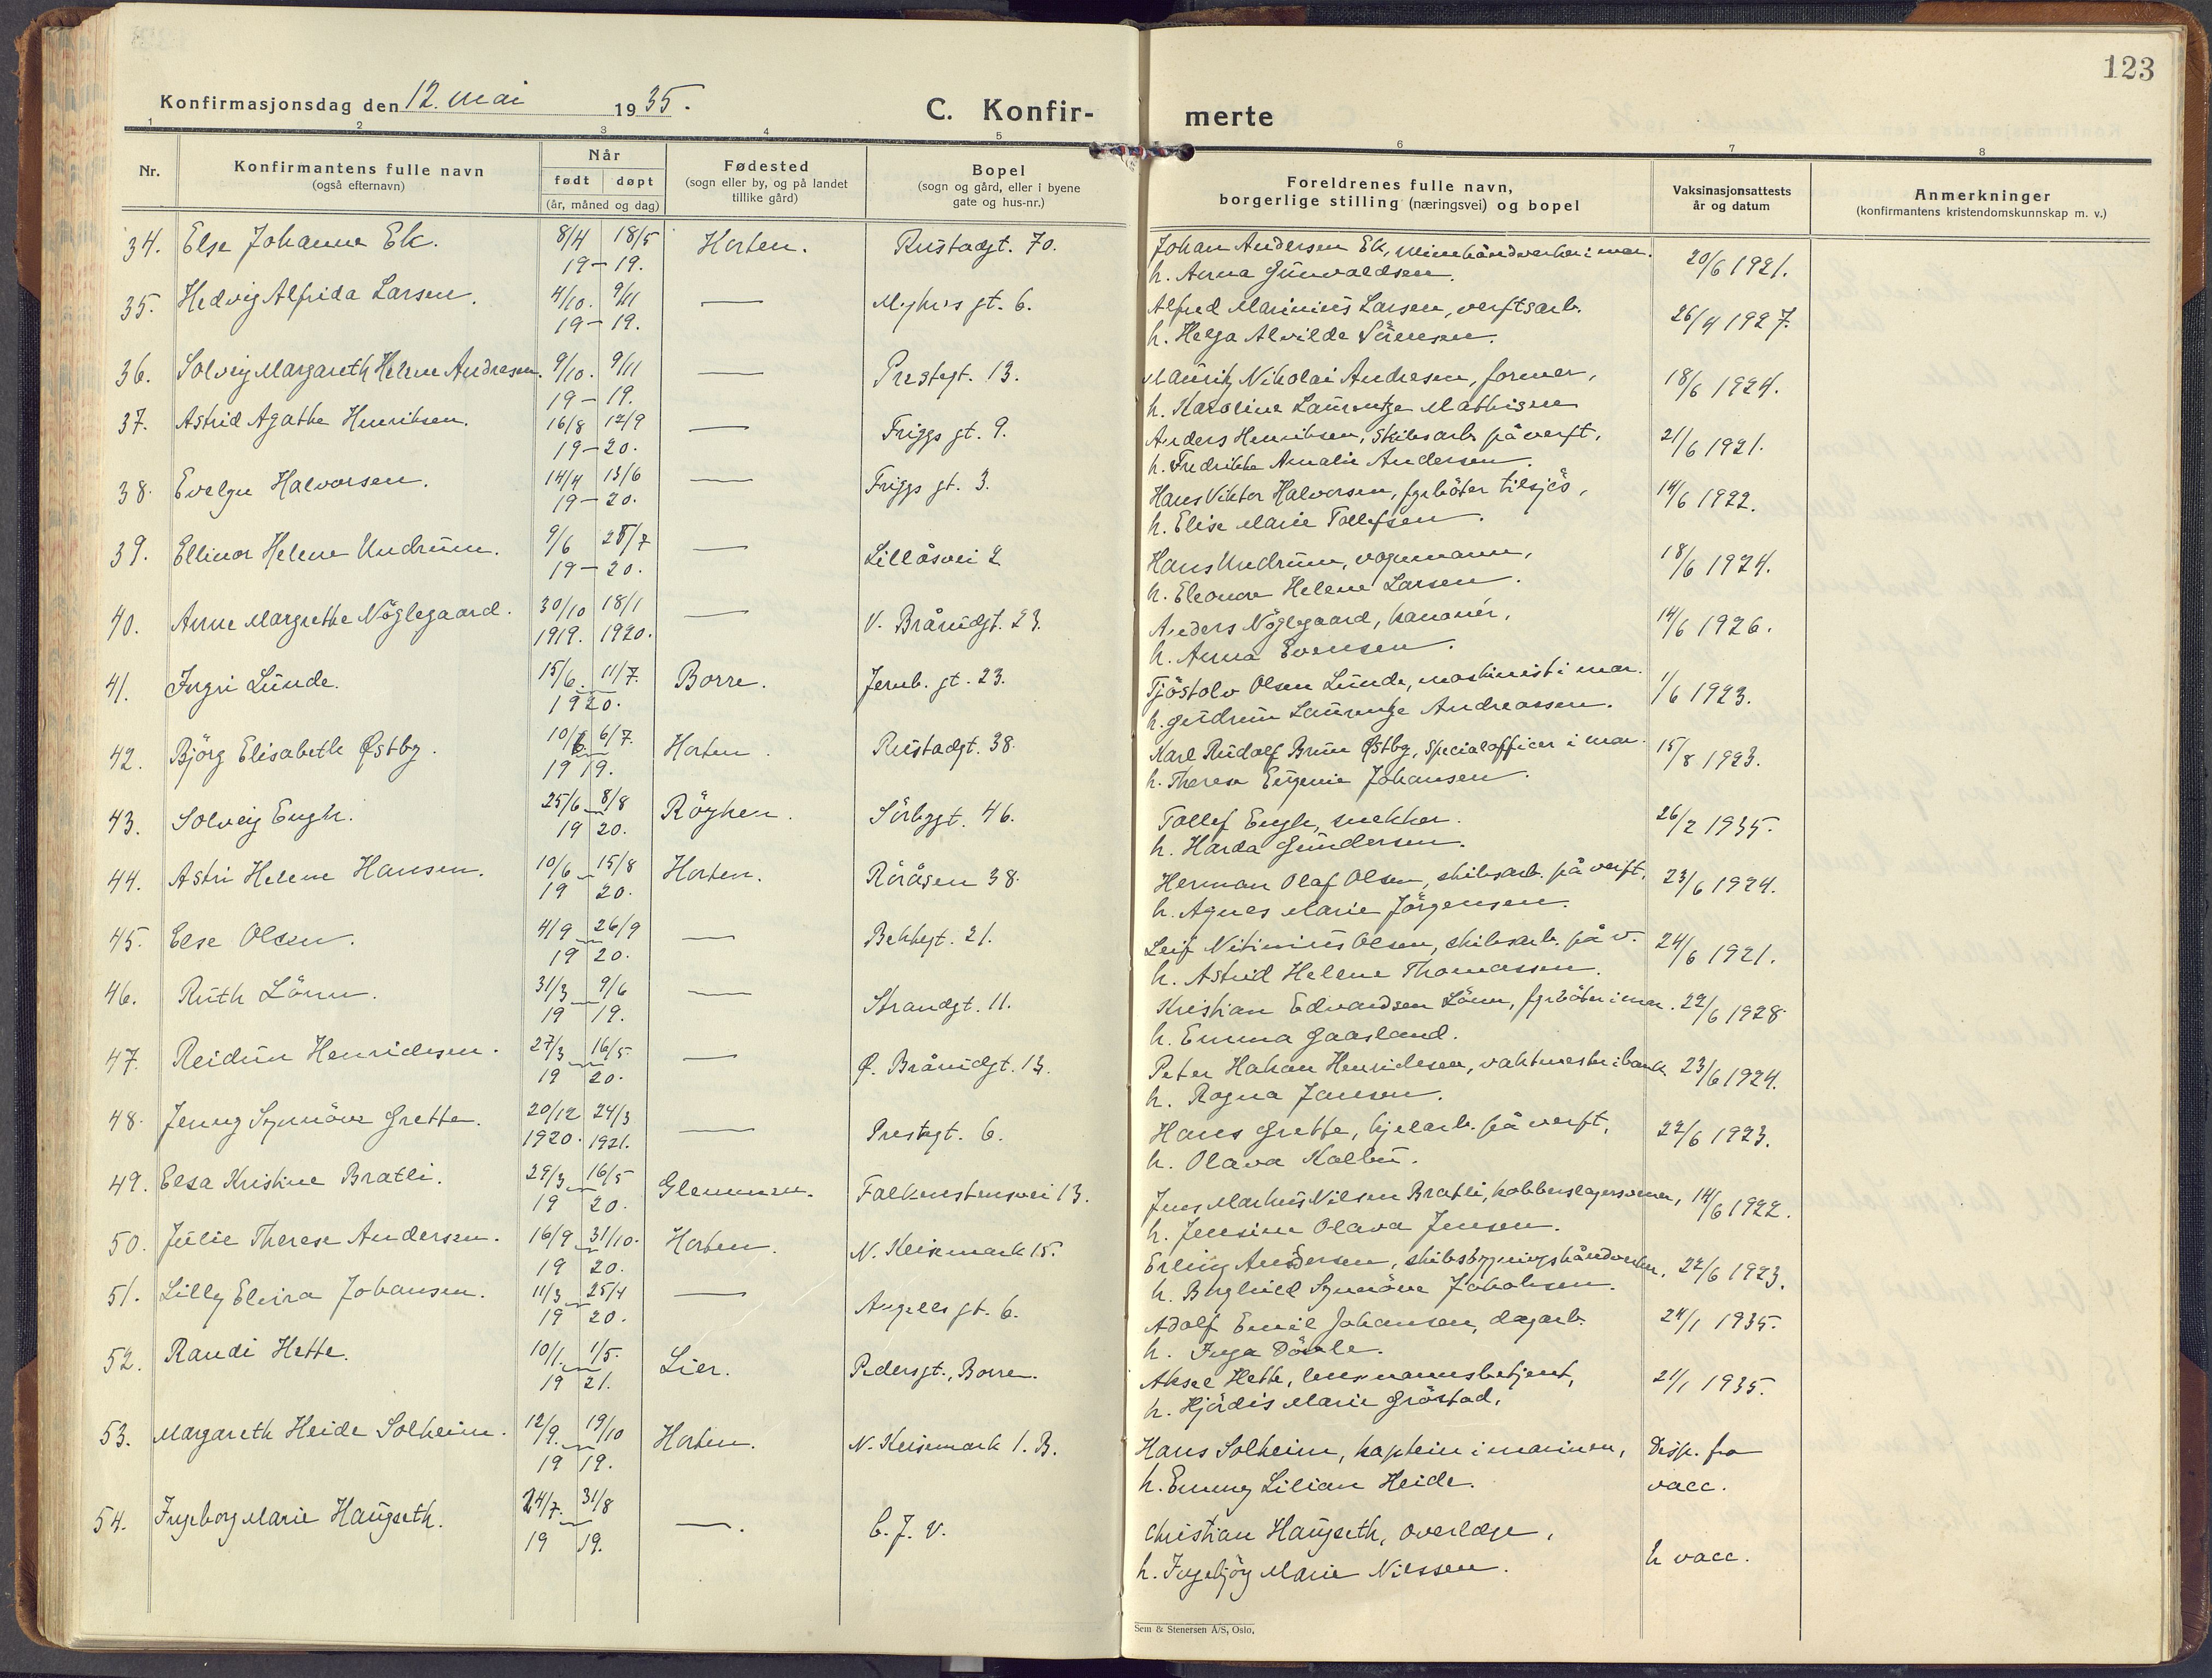 123
Konfirmasjonsdag den 12. mai 1935.
C. Konfir- merte
1 2 3 4 5 6 7 8
Nr.
Konfirmantens fulle navn
(også efternavn)
Når
født døpt
(år, måned og dag)
Fødested
(sogn eller by, og på landet
tillike gård)
Bopel
(sogn og gård, eller i byene
gate og hus-nr.)
Foreldrenes fulle navn,
borgerlige stilling (næringsvei) og bopel
Vaksinasjonsattests
år og datum
Anmerkninger
(konfirmantens kristendomskunnskap m. v.)
34. Else Johanne Ek. 8/4 18/5 Horten. Rustadgt. 70. Johan Andersen Ek, minehåndverker i mar. 20/6 1921.
19 — 19. h. Anna Gunvaldsen.
35. Hedvig Alfrida Larsen. 4/10. 9/11 — Myhrs gt. 6. Alfred Marinius Larsen, verftsarb. 26/4 1927.
19 — 19. h. Helga Alvilde Sörensen.
36. Solveig Margareth Helene Andresen. 9/10. 9/11 — Prestegt. 13. Mauritz Nikolai Andresen, former, 18/6 1924.
19 — 19. h. Karoline Laurentze Mathisen
37. Astrid Agathe Henriksen. 16/8 12/9 — Friggs gt. 9. Anders Henriksen, Skibsarb. på verft, 21/6 1921.
19 — 20. h. Fredrikke Amalie Andersen.
38. Evelyn Halvorsen. 14/4 13/6 — Friggs gt. 3. Hans Viktor Halvorsen, fyrböter tilsjös, 14/6 1922.
19 — 20. h. Elise Marie Tollefsen.
39. Ellinor Helene Undrum. 9/6 25/7 — Lillåsvei 2 Hans Undrum, vognmann, 18/6 1924.
19 — 20. h. Eleonora Helene Larsen.
40. Anne Margrethe Nöglegaard. 30/10 18/1 — V. Bråundgt. 23. Anders Nöglegaard, kanonér, 14/6 1926.
1919. 1920. h. Anna Evensen.
41. Ingri Lunde. 15/6. 11/7. Borre. Jernb. gt. 23. Tjöstolv Olsen Lunde, maskinist i mar. 1/6 1923.
1920. h. Gudrun Laurentze Andreassen.
42. Björg Elisabeth Østby. 10/6 6/7. Horten. Rustadgt. 38. Karl Rudolf Brun Østby, Specialofficer i mar. 15/8 1923.
1919. h. Therese Eugenie Johansen.
43. Solveig Engh. 25/6 8/8 Röyken. Sörbygt. 46. Tollef Engh, snekker. 26/2 1935.
19 20. h. Harda Gundersen.
44. Astri Helene Hansen. 10/6 15/8 Horten. Röråsen 38. Herman Olaf Olsen, skibsarb. på verft, 23/6 1924.
19 20. h. Agnes Marie Jörgensen.
45. Else Olsen. 4/9 26/9 — Bekkegt. 21. Leif Nitinius Olsen, skibsarb. på v. 24/6 1921.
19 20. h. Astrid Helene Thomassen.
46. Ruth Lönn. 31/3 9/6 — Strandgt. 11. Kristian Edvardsen Lönn, fyrböter i mar. 22/6 1928.
19 19. h. Emma Gaasland.
47. Reidun Henriksen. 27/3 16/5 — Ø. Bråundgt. 13. Peter Hakon Henriksen, vaktmester i bank. 23/6 1924.
19 20. h. Ragna Jansen.
48. Jenny Synnöve Grette. 20/12 24/3 — Prestegt. 6. Hans Grette, kjelarb. på verft, 22/6 1923.
1920. 1921. h. Olava Kolbu.
49. Elsa Kristine Bratli. 29/3 16/5 Glemmen. Falkenstensvei 13. Jens Markus Nilsen Bratli, kobberslagersvenn, 14/6 1922.
19 20. h. Jensine Olava Jensen.
50. Julie Therese Andersen. 16/9 31/10. Horten. N. Keisemark 15. Erling Andersen, skibsbygningshåndverker, 22/6 1923.
19 20. h. Borghild Synnöve Jakobsen.
51. Lilly Elvira Johansen. 11/3 25/4 — Angells gt. 6. Adolf Emil Johansen, dagarb. 24/1 1935.
19 20. h. Inga Dövle.
52. Randi Hette. 10/1. 1/5. Lier. Pedersgt., Borre. Aksel Hette, lensmannsbetjent, 21/1 1935.
19 21. h. Hjördis Marie Gröstad.
53. Margareth Heide Solheim. 12/9. 19/10 Horten. N. Keisemark 1. B. Hans Solheim, kaptein i marinen, Disp. fra
19 19. h. Emmy Lilian Heide. vacc.
54. Ingeborg Marie Haugseth. 24/7. 31/8 —. C. J. V. Christian Haugseth, overlæge,
19 19. h. Ingebjörg Marie Nilssen. h vacc.
Sem & Stenersen A/S, Oslo.